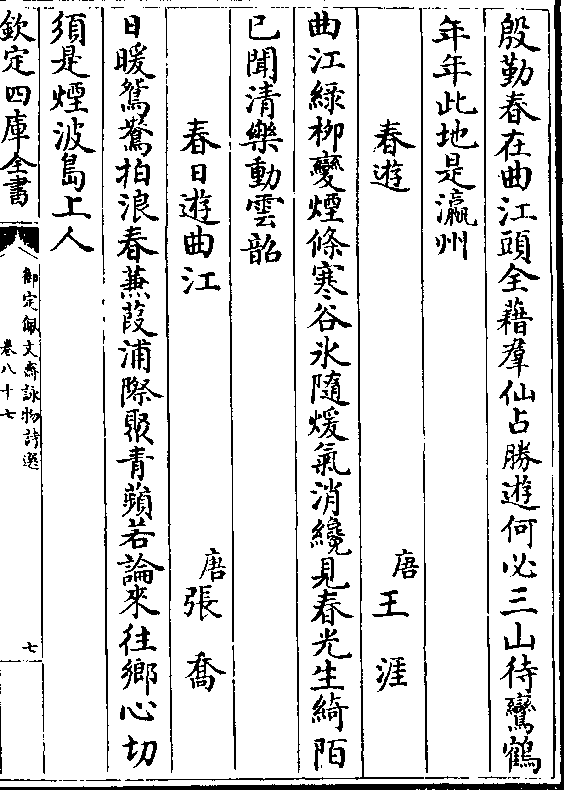 殷勤春在曲江頭全藉羣仙占勝遊何必三山待鸞鶴
年年此地是瀛州
春遊　唐王涯
曲江綠柳變煙條寒谷氷隨煖氣消纔見春光生綺陌
已聞清樂動雲韶
春日遊曲江　唐張喬
日暖鴛鴦拍浪春蒹葭浦際聚青蘋若論來往鄉心切
須是煙波島上人
欽定四庫全書
御定佩文齋詠物詩選
卷八十七
七